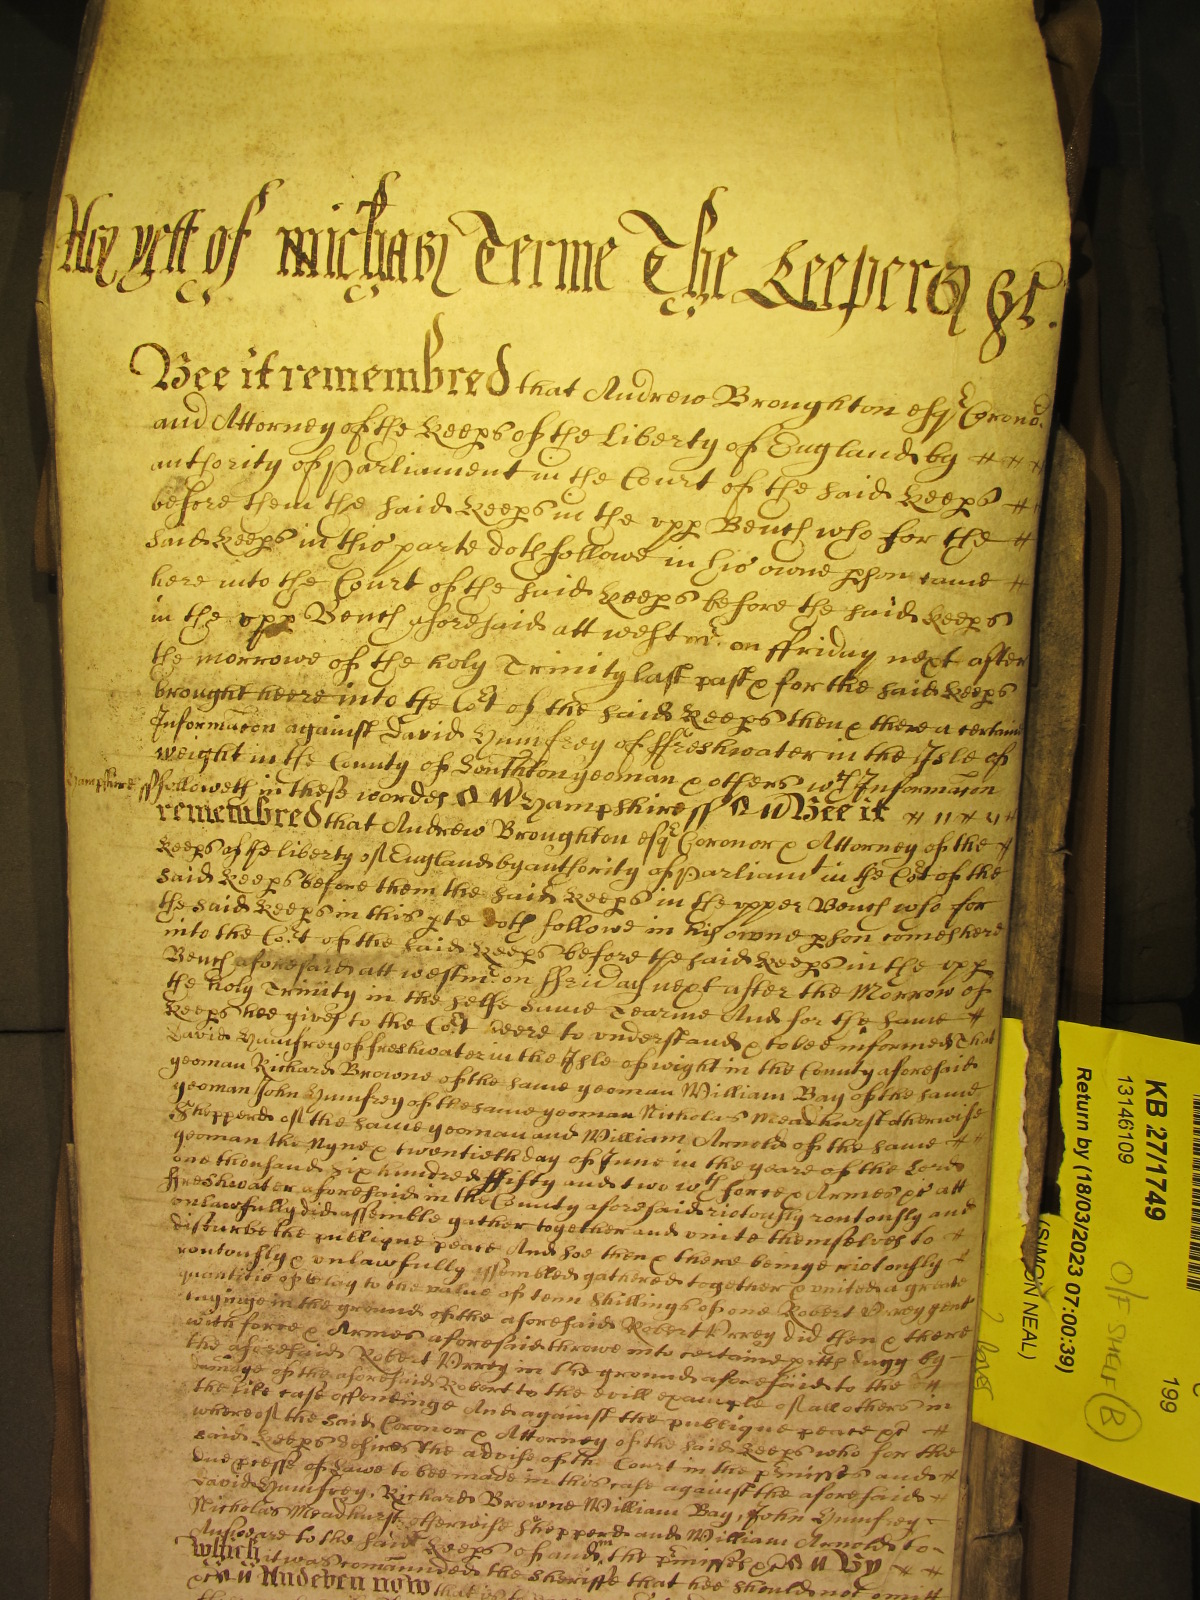 yett of Michais Terme The Keepers &c.
Bee it remembred that Andrew Broughton esqr Corono.r
and Attorney of the Keeps of the liberty of England by
authority of Parliament in the Court of the said Keeps
before them the said Keeps in the vpp Bench who for the
said Keeps in this parte doth followe in his owne pson came
here into the Court of the said Keeps before the said Keeps
in the vpp Bench aforesaid att westmr. on ffriday next after
the morrowe of the holy Trinity last past & for the said Keeps
brought heere into the Cort of the said Keeps then & there a certaine
Informacon against David Humfrey of ffreshwater in the Isle of
weight in the County of Southton yeoman & others wch Informacon
Hampshire ss followeth in these wordes ss Hampshire ss Bee it
remembred that Andrew Broughton esqr Coronor & Attorney of the
Keeps of the liberty of England by authority of Parliamt in the Cort of the
said Keeps before them the said Keeps in the vpper Bench who for
the said Keeps in this pte doth followe in his owne pson comes here
into the Cort of the said Keeps before the said Keeps in the vpp
Bench aforesaid att westmr. on ffriday next after the Morrow of
the holy Trinity in the selfe same Tearme And for the same
Keeps hee gives to the Cort heere to vnderstand & to bee informed That
David Humfrey of freshwater in the Isle of wight in the County aforesaid
yeoman Richard Browne of the same yeoman William Bay of the same
yeoman John Humfrey of the same yeoman Nicholas Meadhurst otherwise
Shepperd of the same yeoman and William Arnold of the same
yeoman the Nyne & twentieth day of June in the yeare of the Lord
one thousand six hundred ffifty and two wth force & Armes &c att
ffreshwater aforesaid in the County aforesaid riotously routously and
vnlawfully did assemble gather together and vnite themselves to
disturbe the publique peace And soe then & there beinge riotously
routously & vnlawfully assembled gathered together & vnited a greate
quantitie of Clay to the value of tenn shillings of one Robert Vrrey gent
laying in the ground of the aforesaid Robert Vrrey did then & there
with force & Armes aforesaid throwe into certaine pitts dugg by
the aforesaid Robert Vrrey in the ground aforesaid to the
damage of the aforesaid Robert to the evill example of all others in
the like case offendinge And against the publique peace &c
whereof the said Coronor & Attorney of the said Keeps who for the
said Keeps desires the advise of the Court in the pmisses and
due pcesse of Lawe to bee made in this case against the aforesaid
David Humfrey, Richard Browne William Bay, John Humfrey
Nicholas Meadhurst otherwise Shepperd and William Arnold to
Answeare to the said Keeps of and in the pmisses &c By
which it was comannded the sheriffe that hee should not omitt
&c And even now that is to
KB 27/1749
13146109
Return by (18/03/2023 07:00:39)
(SIMON NEAL)
199
O/F SHELF B